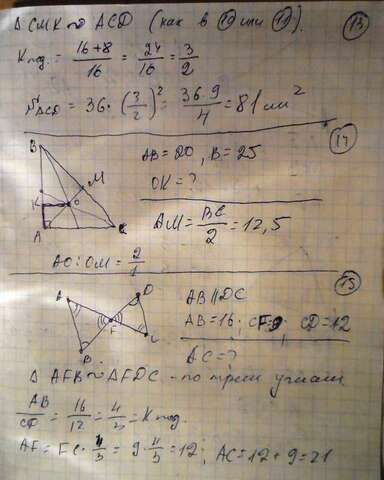 Δ CMK ∾ ACD (как в 10 или 11). 13
Kпод. = (16+8)/16 = 24/16 = 3/2
S ACD = 36·(3/2)² = 36·9/4 = 81 см²
14
B
M
K
O
A
C
AB = 20, B = 25
OK = ?
AM = BC/2 = 12,5
AO : OM = 2/1
15
A
D
F
B
C
AB ∥ DC
AB = 16; CF = 9; CD = 12
AC = ?
Δ AFB ∾ ΔFDC - по трем углам
AB/CD = 16/12 = 4/3 = Kпод.
AF = FC · 4/3 = 9 · 4/3 = 12; AC = 12 + 9 = 21